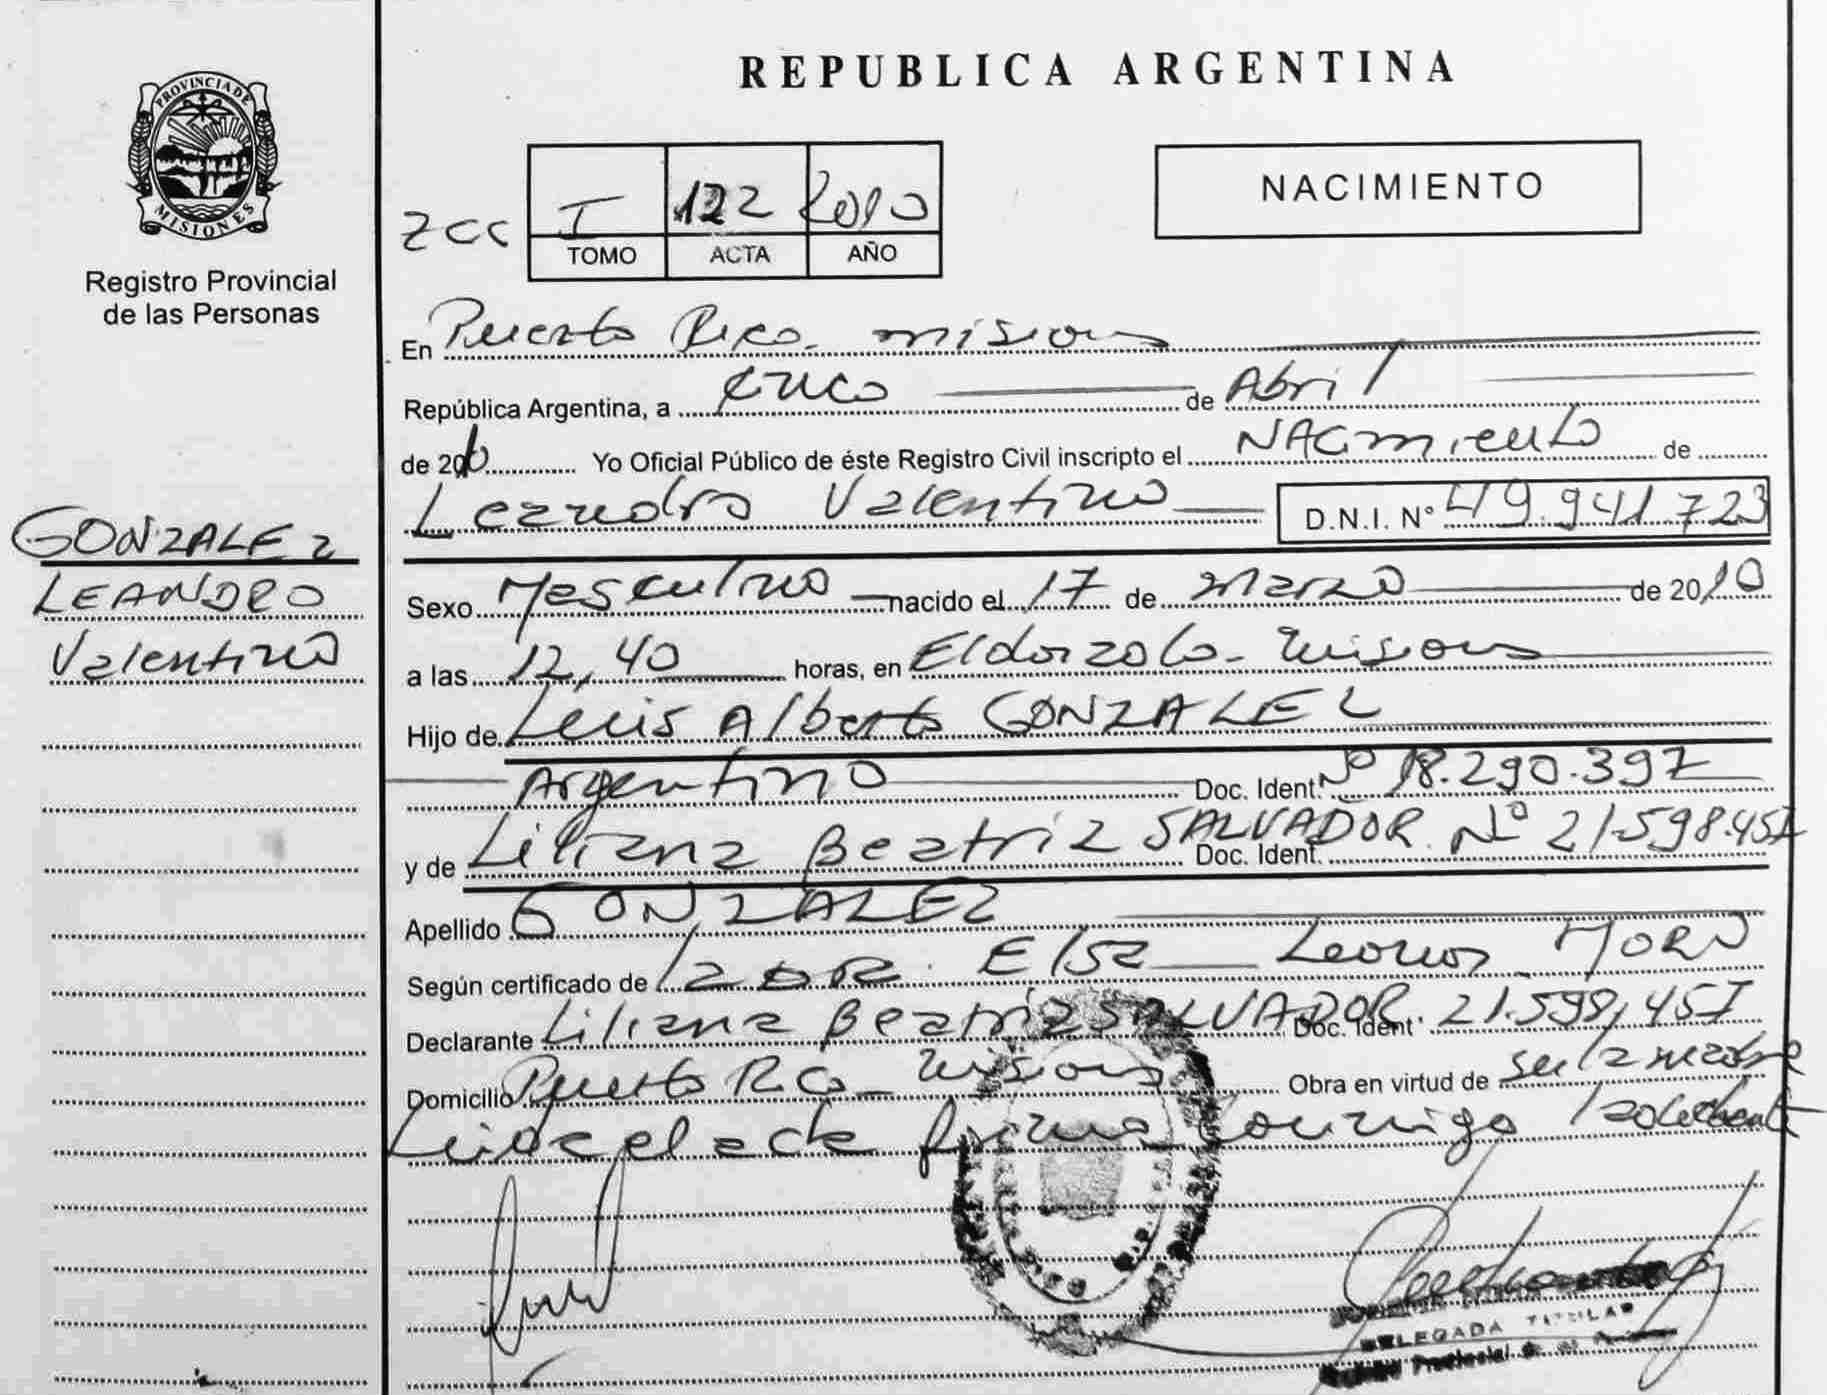 REPUBLICA ARGENTINA
PROVINCIA DE
MISIONES
Registro Provincial
de las Personas
NACIMIENTO
I 122 2010
TOMO ACTA AÑO
En Puerto Rico - Misiones
República Argentina, a cinco de Abril
de 2010 Yo Oficial Público de éste Registro Civil inscripto el NACimiento de
Leandro Valentino D.N.I. Nº 49.941.723
GONZALEZ
LEANDRO
Valentino
Sexo Masculino nacido el 17 de marzo de 2010
a las 12,40 horas, en Eldorado - Misiones
Hijo de Luis Alberto GONZALEZ
Argentino Doc. Ident. Nº 18.290.397
y de Liliana Beatriz SALVADOR Doc. Ident. Nº 21.598.451
Apellido GONZALEZ
Según certificado de la DRA. Elsa Leonor MORN
Declarante Liliana Beatriz SALVADOR Doc. Ident. 21.598,451
Domicilio Puerto Rico - Misiones Obra en virtud de ser la madre
Leida el acta firma conmigo
DELEGADA TITULAR
Provincial